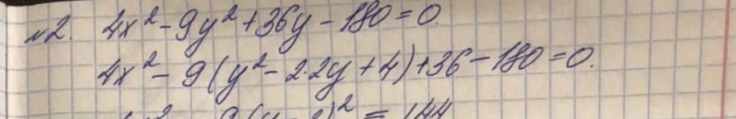 №2. 4x² - 9y² + 36y - 180 = 0.
4x² - 9(y² - 2·2y + 4) + 36 - 180 = 0.
4x² - 9(y - 2)² = 144